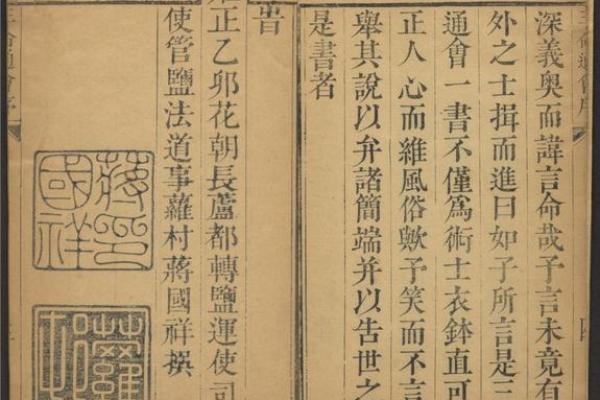 三命通會序
深義奧而諱言命哉予言未竟有
外之士揖而進曰如子所言是三
通會一書不僅爲術士衣鉢直可
正人心而維風俗歟予笑而不言
舉其說以弁諸簡端并以告世之
是書者
旹
正乙卯花朝長蘆都轉鹽運使司
使管鹽法道事蘿村蔣國祥撰
蔣印
國祥